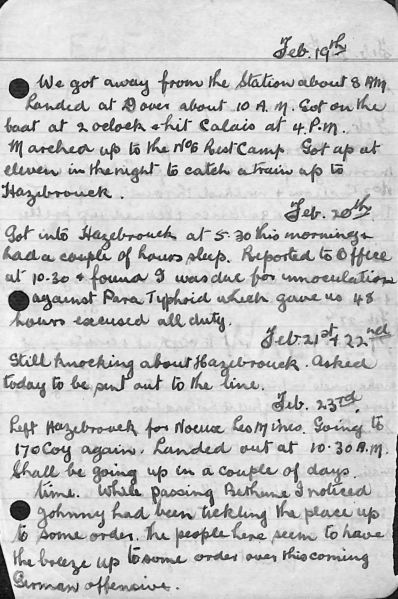 Feb. 19th
We got away from the Station about 8 AM
Landed at Dover about 10 A.M. Got on the
boat at 2 oclock & hit Calais at 4.P.M.
Marched up to the No 6 Rest Camp Got up at
eleven in the night to catch a train up to
Hazebrouck.
Feb. 20th
Got into Hazebrouck at 5.30 this morning &
had a couple of hours sleep. Reported to Office
at 10.30 & found I was due for innoculation
against Para Typhoid which gave us 48
hours excused all duty.
Feb. 21st & 22nd
Still knocking about Hazebrouck. Asked
today to be sent out to the line.
Feb. 23rd.
Left Hazebrouck for Noeux Les Mines. Going to
170 Coy again. Landed out at 10.30 A.M.
Shall be going up in a couple of days
time. While passing Bethune I noticed
Johnny had been tickling the place up
to some order. The people here seem to have
the breeze up to some order over this coming
German offensive.